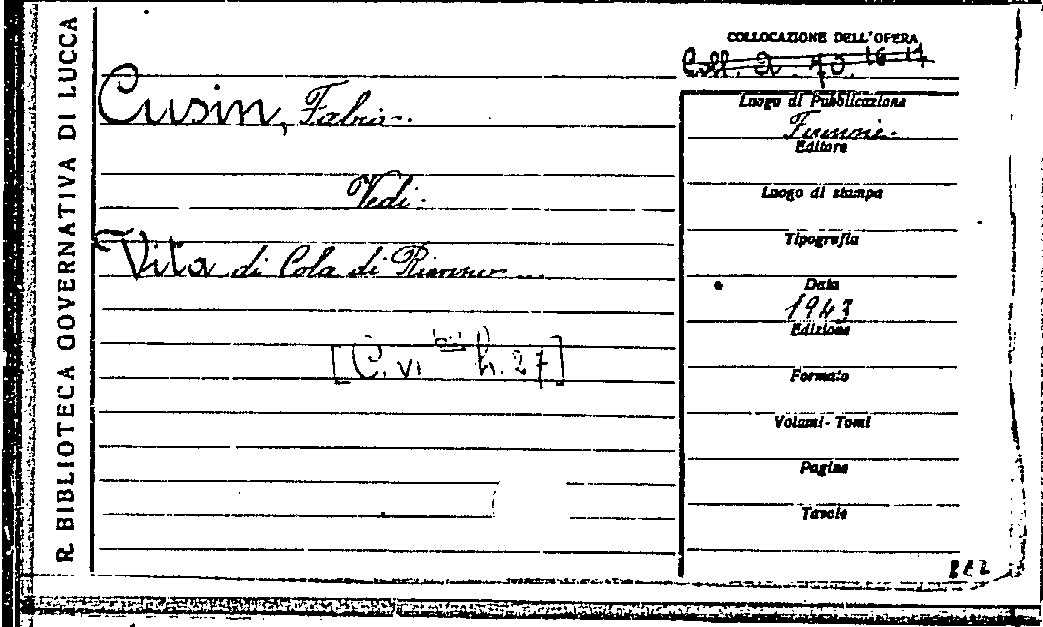 R. BIBLIOTECA GOVERNATIVA DI LUCCA
COLLOCAZIONE DELL'OPERA
Coll. 16-17
Cusin, Fabio.
Vedi:
Vita di Cola di Rienzo...
[C. VI bis h. 27]
Luogo di Pubblicazione
Firenze.
Editore
Luogo di stampa
Tipografia
Data
1943
Edizione
Formato
Volumi - Tomi
Pagine
Tavole